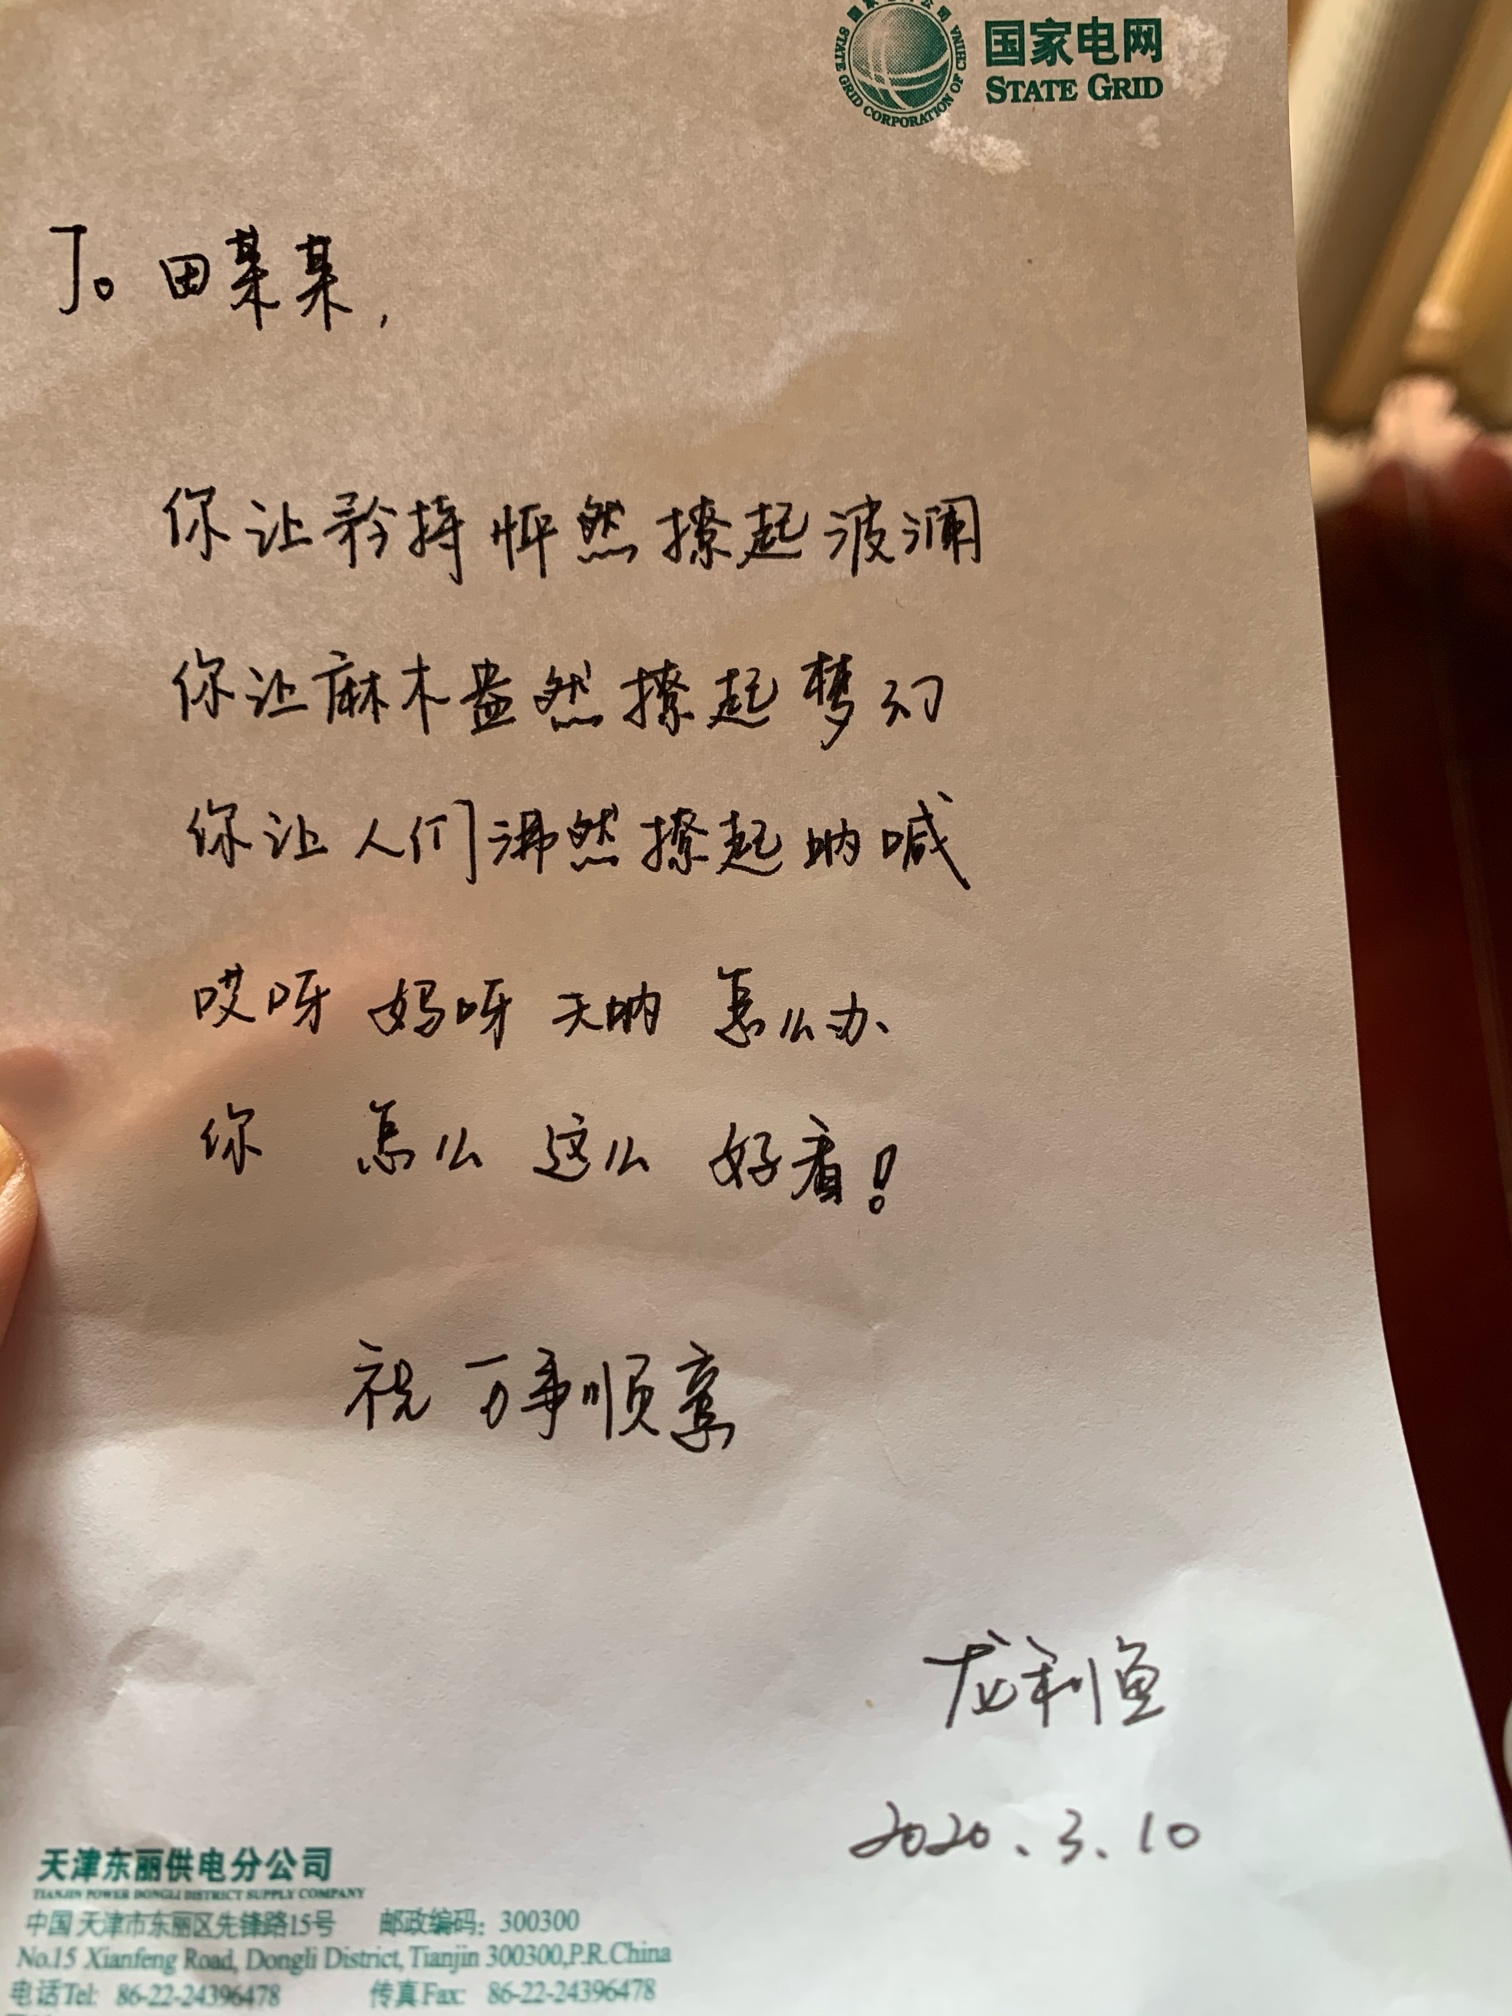 国家电网
STATE GRID
STATE GRID CORPORATION OF CHINA
To 田某某,
你让矜持怦然撩起波澜
你让麻木盎然撩起梦幻
你让人们沸然撩起呐喊
哎呀 妈呀 天呐 怎么办
你 怎么 这么 好看!
祝 万事顺意
龙利鱼
2020.3.10
天津东丽供电分公司
TIANJIN POWER DONGLI DISTRICT SUPPLY COMPANY
中国 天津市东丽区先锋路15号 邮政编码: 300300
No.15 Xianfeng Road, Dongli District, Tianjin 300300,P.R.China
电话Tel: 86-22-24396478 传真Fax: 86-22-24396478